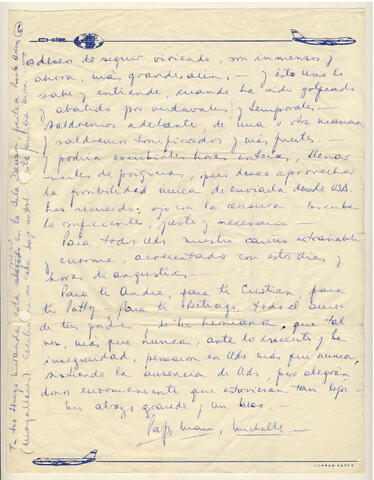 deseos de seguir viviendo, son inmensos y
ahora, más grandes aún. — y ésto uno lo
sabe y entiende, cuando ha sido golpeado
y abatido por vendavales y temporales.—
Saldremos adelante, de una u otra manera
y saldremos tonificados y más fuertes.
y podría escribirles horas enteras, llenar
miles de páginas, pero deseo aprovechar
la posibilidad única de enviarla desde USA.
Les recuerdo: ojo con la censura — escriban
lo suficiente, justo y necesario —
Para todos Uds. nuestro cariño entrañable
enorme, acrecentado con estos días y
horas de angustias.—
Para ti André, para ti Cristian, para
ti Patty, para ti Betzage, todo el amor
de tus padres, de tu hermana, que tal
vez, más que nunca, ante lo incierto y la
inseguridad, pensaron en Uds más que nunca,
sintiendo la ausencia de Uds, pero alegrán
donos enormemente que estuvieran tan lejos.—
Un abrazo grande y un beso.—
Papy Mamy Michelle —
Tu tío Hugo Miranda está alojado en la Isla Dawson frente a Punta Arenas
(Magallanes). Cecilia